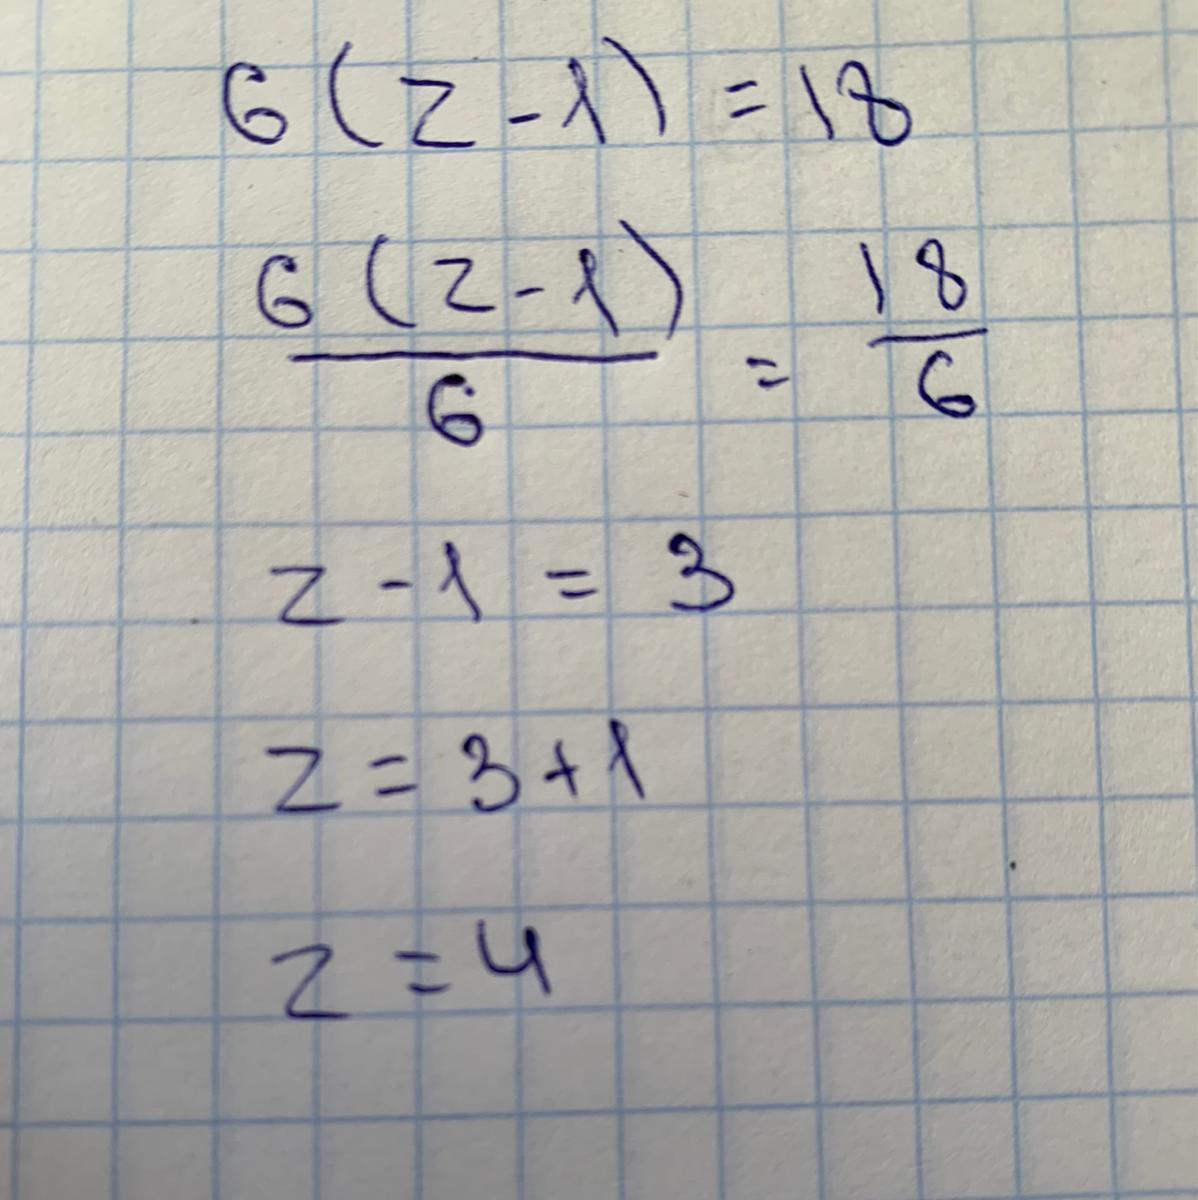 6(z-1)=18
6(z-1)/6 = 18/6
z-1 = 3
z=3+1
z=4